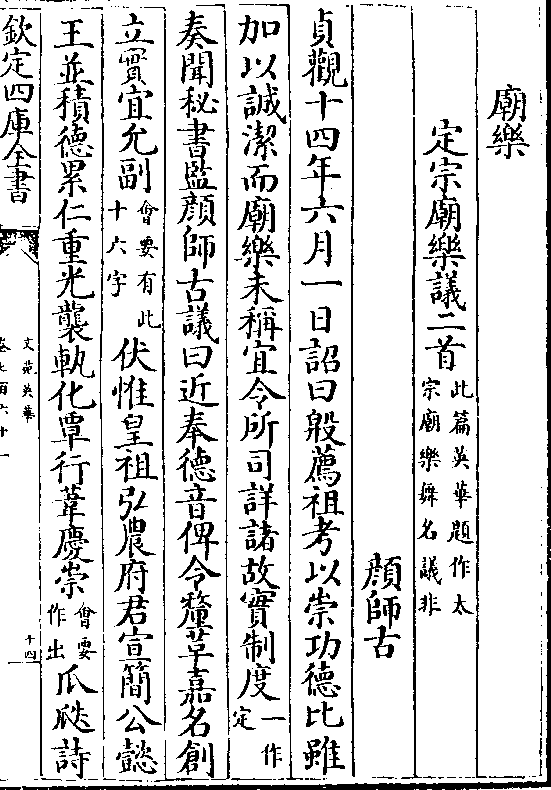 廟樂
定宗廟樂議二首此篇英華題作太
宗廟樂舞名議非
顔師古
貞觀十四年六月一日詔曰殷薦祖考以崇功德比雖
加以誠潔而廟樂未稱宜令所司詳諸故實制度一作
定
奏聞秘書監顔師古議曰近奉德音俾令釐革嘉名創
立實宜允副會要有此
十六字伏惟皇祖弘農府君宣簡公懿
王並積德累仁重光襲軌化覃行葦慶崇會要
作出瓜瓞詩
欽定四庫全書
文苑英華
卷七百六十一
十四